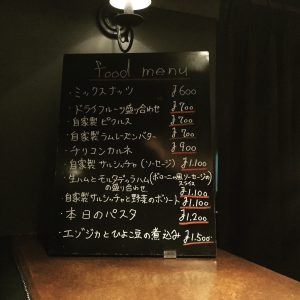 food menu
・ミックスナッツ ¥600
・ドライフルーツ盛り合わせ ¥700
・自家製ピクルス ¥700
・自家製ラムレーズンバター ¥700
・チリコンカルネ ¥900
・自家製サルシッチャ(ソーセージ) ¥1.100
・生ハムとモルタデッラハム(ボローニャ風ソーセージのスライス
の盛り合わせ ¥1.100
自家製サルシッチャと野菜のポリート ¥1.100
・本日のパスタ ¥1,200
・エゾジカとひよこ豆の煮込み ¥1.500